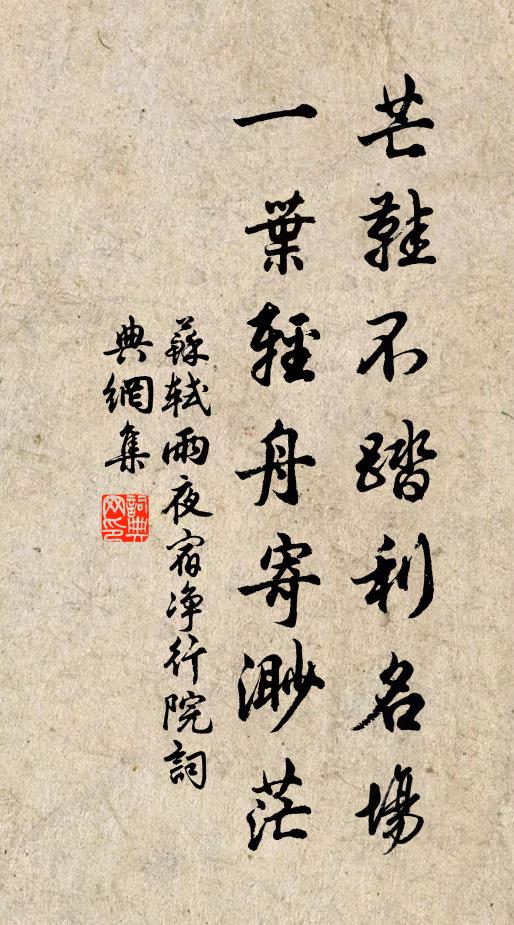 芒鞋不踏利名場
一葉輕舟寄渺茫
蘇軾雨夜宿淨行院詞
典網集
詞典網印